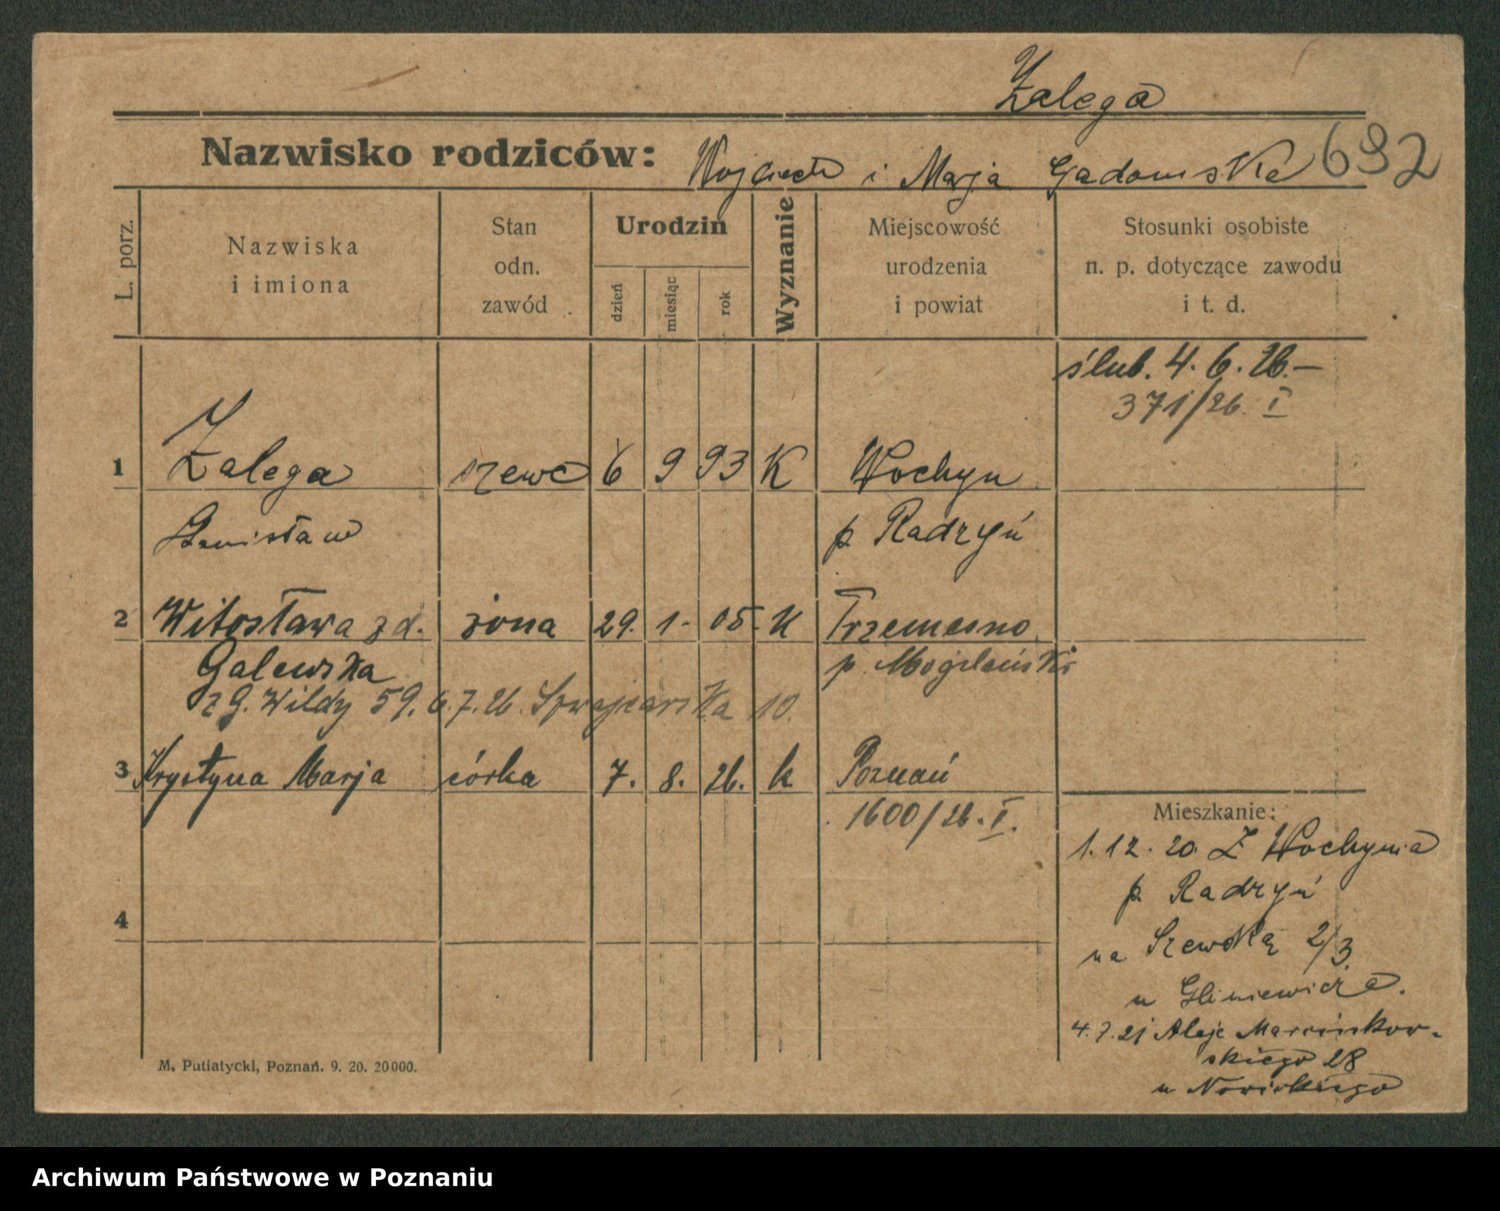 Zalega
Nazwisko rodziców: Wojciech i Marja Gadomska 692
L. porz.
Nazwiska
i imiona
Stan
odn.
zawód
Urodzin
dzień
miesiąc
rok
Wyznanie
Miejscowość
urodzenia
i powiat
Stosunki osobiste
n. p. dotyczące zawodu
i t. d.
ślub. 4. 6. 26. –
371/26. I
1 Zalega szewc 6 9 93 K Wochyn
Stanisław p. Radzyń
2 Witosława z d. żona 29. 1. 05 K Trzemeszno
Galewska p. Mogileński
z G. Wildy 59. 6.7.26. Szwajcarska 10.
3 Krystyna Marja córka 7. 8. 26. k Poznań
1600/26. I.
4
Mieszkanie:
1. 12. 20. Z Wochynia
p. Radzyń
na Szewską 2/3
u Gliniewicza.
4.7.21 Aleje Marcinkow-
skiego 28
u Nowickiego
M. Putiatycki, Poznań. 9. 20. 20000.
Archiwum Państwowe w Poznaniu